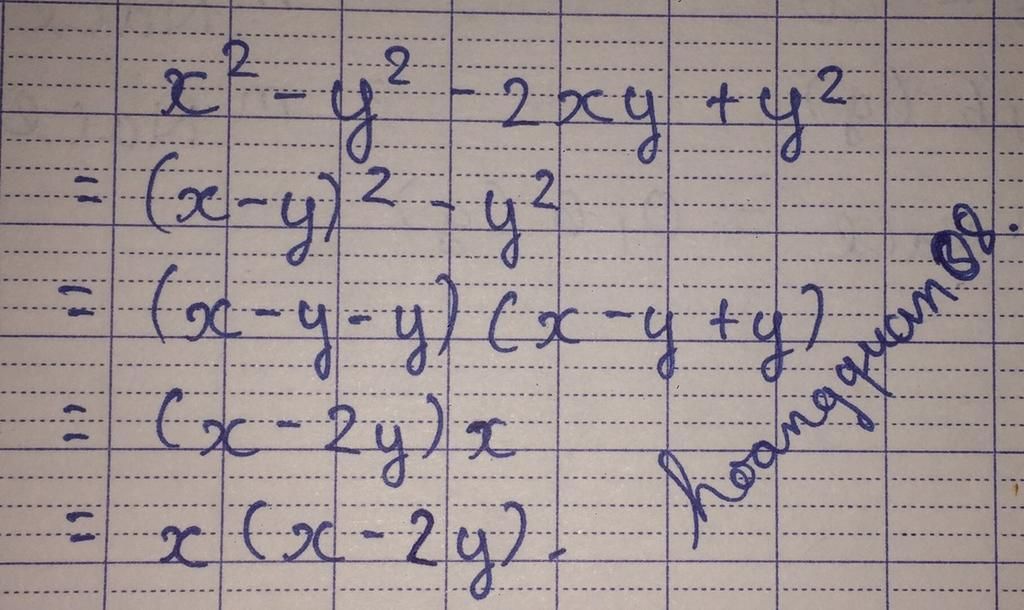 x² - y² - 2xy + y²
= (x-y)² - y²
= (x-y-y) (x-y+y)
= (x-2y)x
= x(x-2y).
hoangquan08.